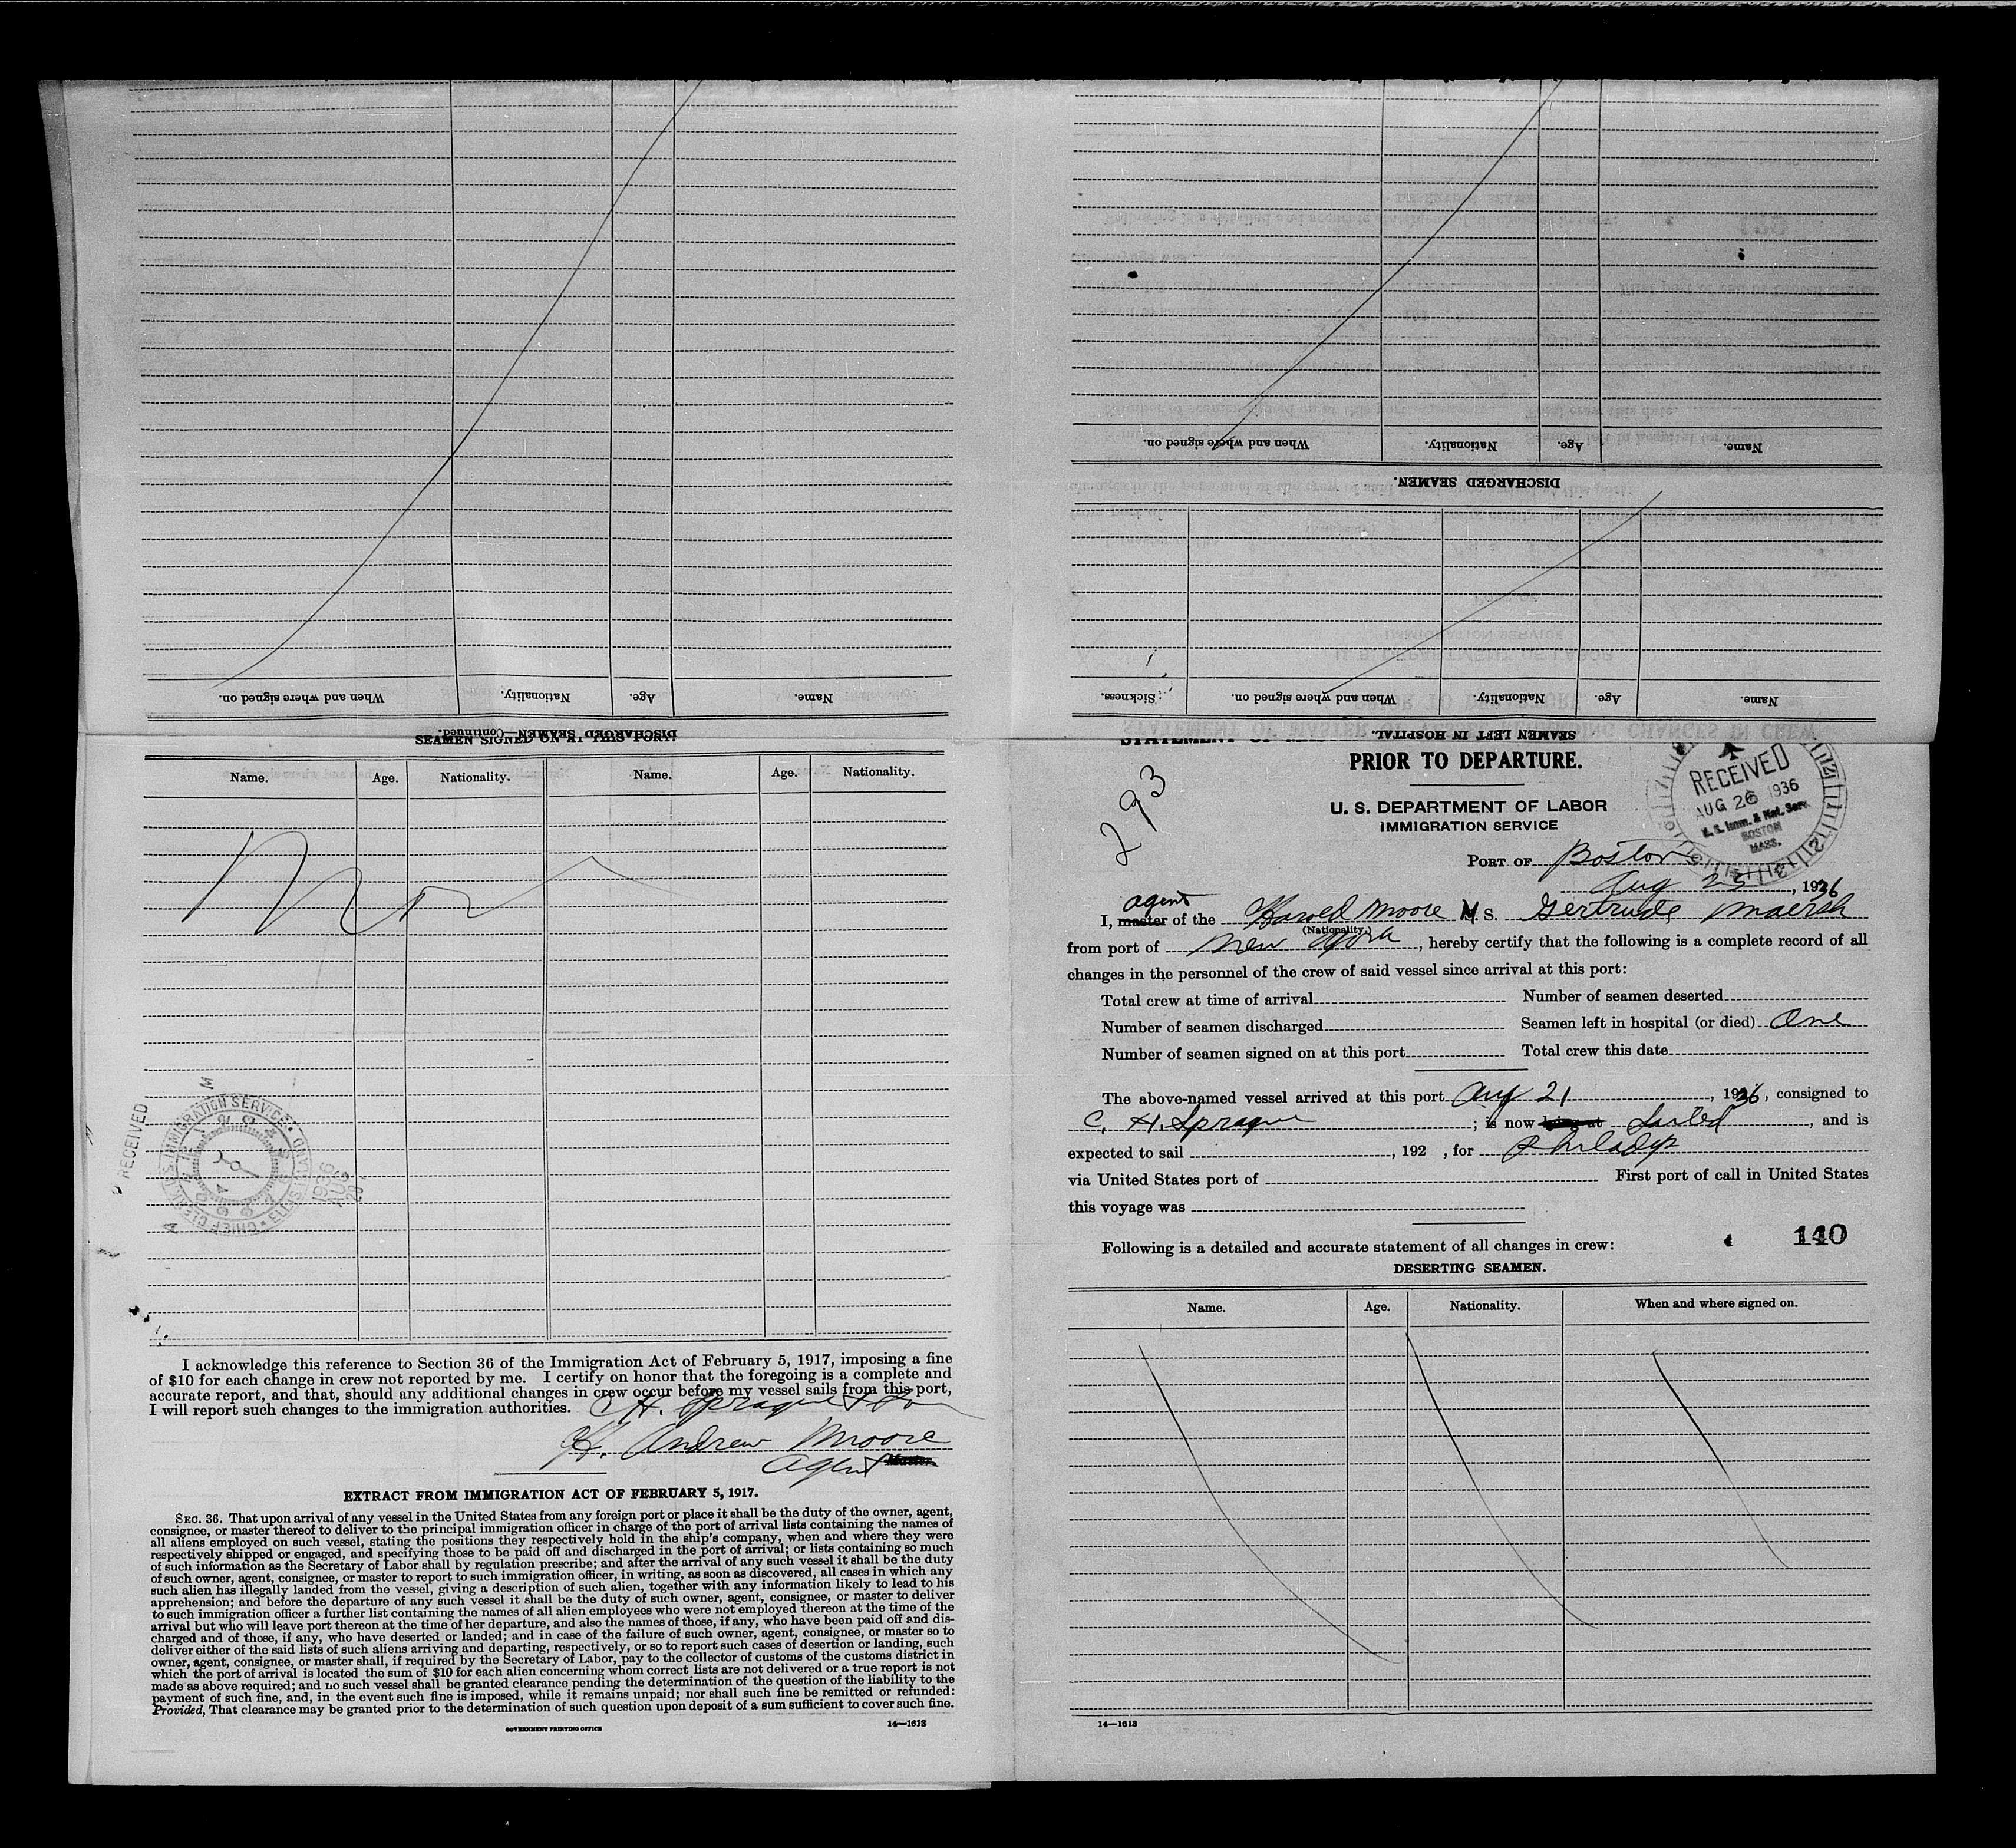 Name. Age. Nationality. When and where signed on.
DISCHARGED SEAMEN—Continued.
Name. Age. Nationality. When and where signed on.
DISCHARGED SEAMEN.
Name. Age. Nationality. When and where signed on. Sickness.
SEAMEN LEFT IN HOSPITAL.
SEAMEN SIGNED ON AT THIS PORT.
Name. Age. Nationality. Name. Age. Nationality.
RECEIVED
U.S. IMMIGRATION SERVICE
CHIEF CLERK
ELLIS ISLAND
1936
I acknowledge this reference to Section 36 of the Immigration Act of February 5, 1917, imposing a fine
of $10 for each change in crew not reported by me. I certify on honor that the foregoing is a complete and
accurate report, and that, should any additional changes in crew occur before my vessel sails from this port,
I will report such changes to the immigration authorities. C H. Sprague & Son
H. Andrew Moore
Agent Master.
EXTRACT FROM IMMIGRATION ACT OF FEBRUARY 5, 1917.
SEC. 36. That upon arrival of any vessel in the United States from any foreign port or place it shall be the duty of the owner, agent,
consignee, or master thereof to deliver to the principal immigration officer in charge of the port of arrival lists containing the names of
all aliens employed on such vessel, stating the positions they respectively hold in the ship's company, when and where they were
respectively shipped or engaged, and specifying those to be paid off and discharged in the port of arrival; or lists containing so much
of such information as the Secretary of Labor shall by regulation prescribe; and after the arrival of any such vessel it shall be the duty
of such owner, agent, consignee, or master to report to such immigration officer, in writing, as soon as discovered, all cases in which any
such alien has illegally landed from the vessel, giving a description of such alien, together with any information likely to lead to his
apprehension; and before the departure of any such vessel it shall be the duty of such owner, agent, consignee, or master to deliver
to such immigration officer a further list containing the names of all alien employees who were not employed thereon at the time of the
arrival but who will leave port thereon at the time of her departure, and also the names of those, if any, who have been paid off and dis-
charged and of those, if any, who have deserted or landed; and in case of the failure of such owner, agent, consignee, or master so to
deliver either of the said lists of such aliens arriving and departing, respectively, or so to report such cases of desertion or landing, such
owner, agent, consignee, or master shall, if required by the Secretary of Labor, pay to the collector of customs of the customs district in
which the port of arrival is located the sum of $10 for each alien concerning whom correct lists are not delivered or a true report is not
made as above required; and no such vessel shall be granted clearance pending the determination of the question of the liability to the
payment of such fine, and, in the event such fine is imposed, while it remains unpaid; nor shall such fine be remitted or refunded:
Provided, That clearance may be granted prior to the determination of such question upon deposit of a sum sufficient to cover such fine.
GOVERNMENT PRINTING OFFICE 14—1613
293
PRIOR TO DEPARTURE.
U. S. DEPARTMENT OF LABOR
IMMIGRATION SERVICE
RECEIVED
AUG 26 1936
U. S. Imm. & Nat. Serv.
BOSTON
MASS.
PORT OF Boston
Aug 25, 1936
agent
I, master of the Harold Moore M S. Gertrude Maersk
(Nationality.)
from port of New York, hereby certify that the following is a complete record of all
changes in the personnel of the crew of said vessel since arrival at this port:
Total crew at time of arrival Number of seamen deserted
Number of seamen discharged Seamen left in hospital (or died) One
Number of seamen signed on at this port Total crew this date
The above-named vessel arrived at this port Aug 21, 1936, consigned to
C. H. Sprague ; is now lying at Sailed, and is
expected to sail , 192 , for Philadp
via United States port of First port of call in United States
this voyage was
Following is a detailed and accurate statement of all changes in crew: 140
DESERTING SEAMEN.
Name. Age. Nationality. When and where signed on.
14—1613